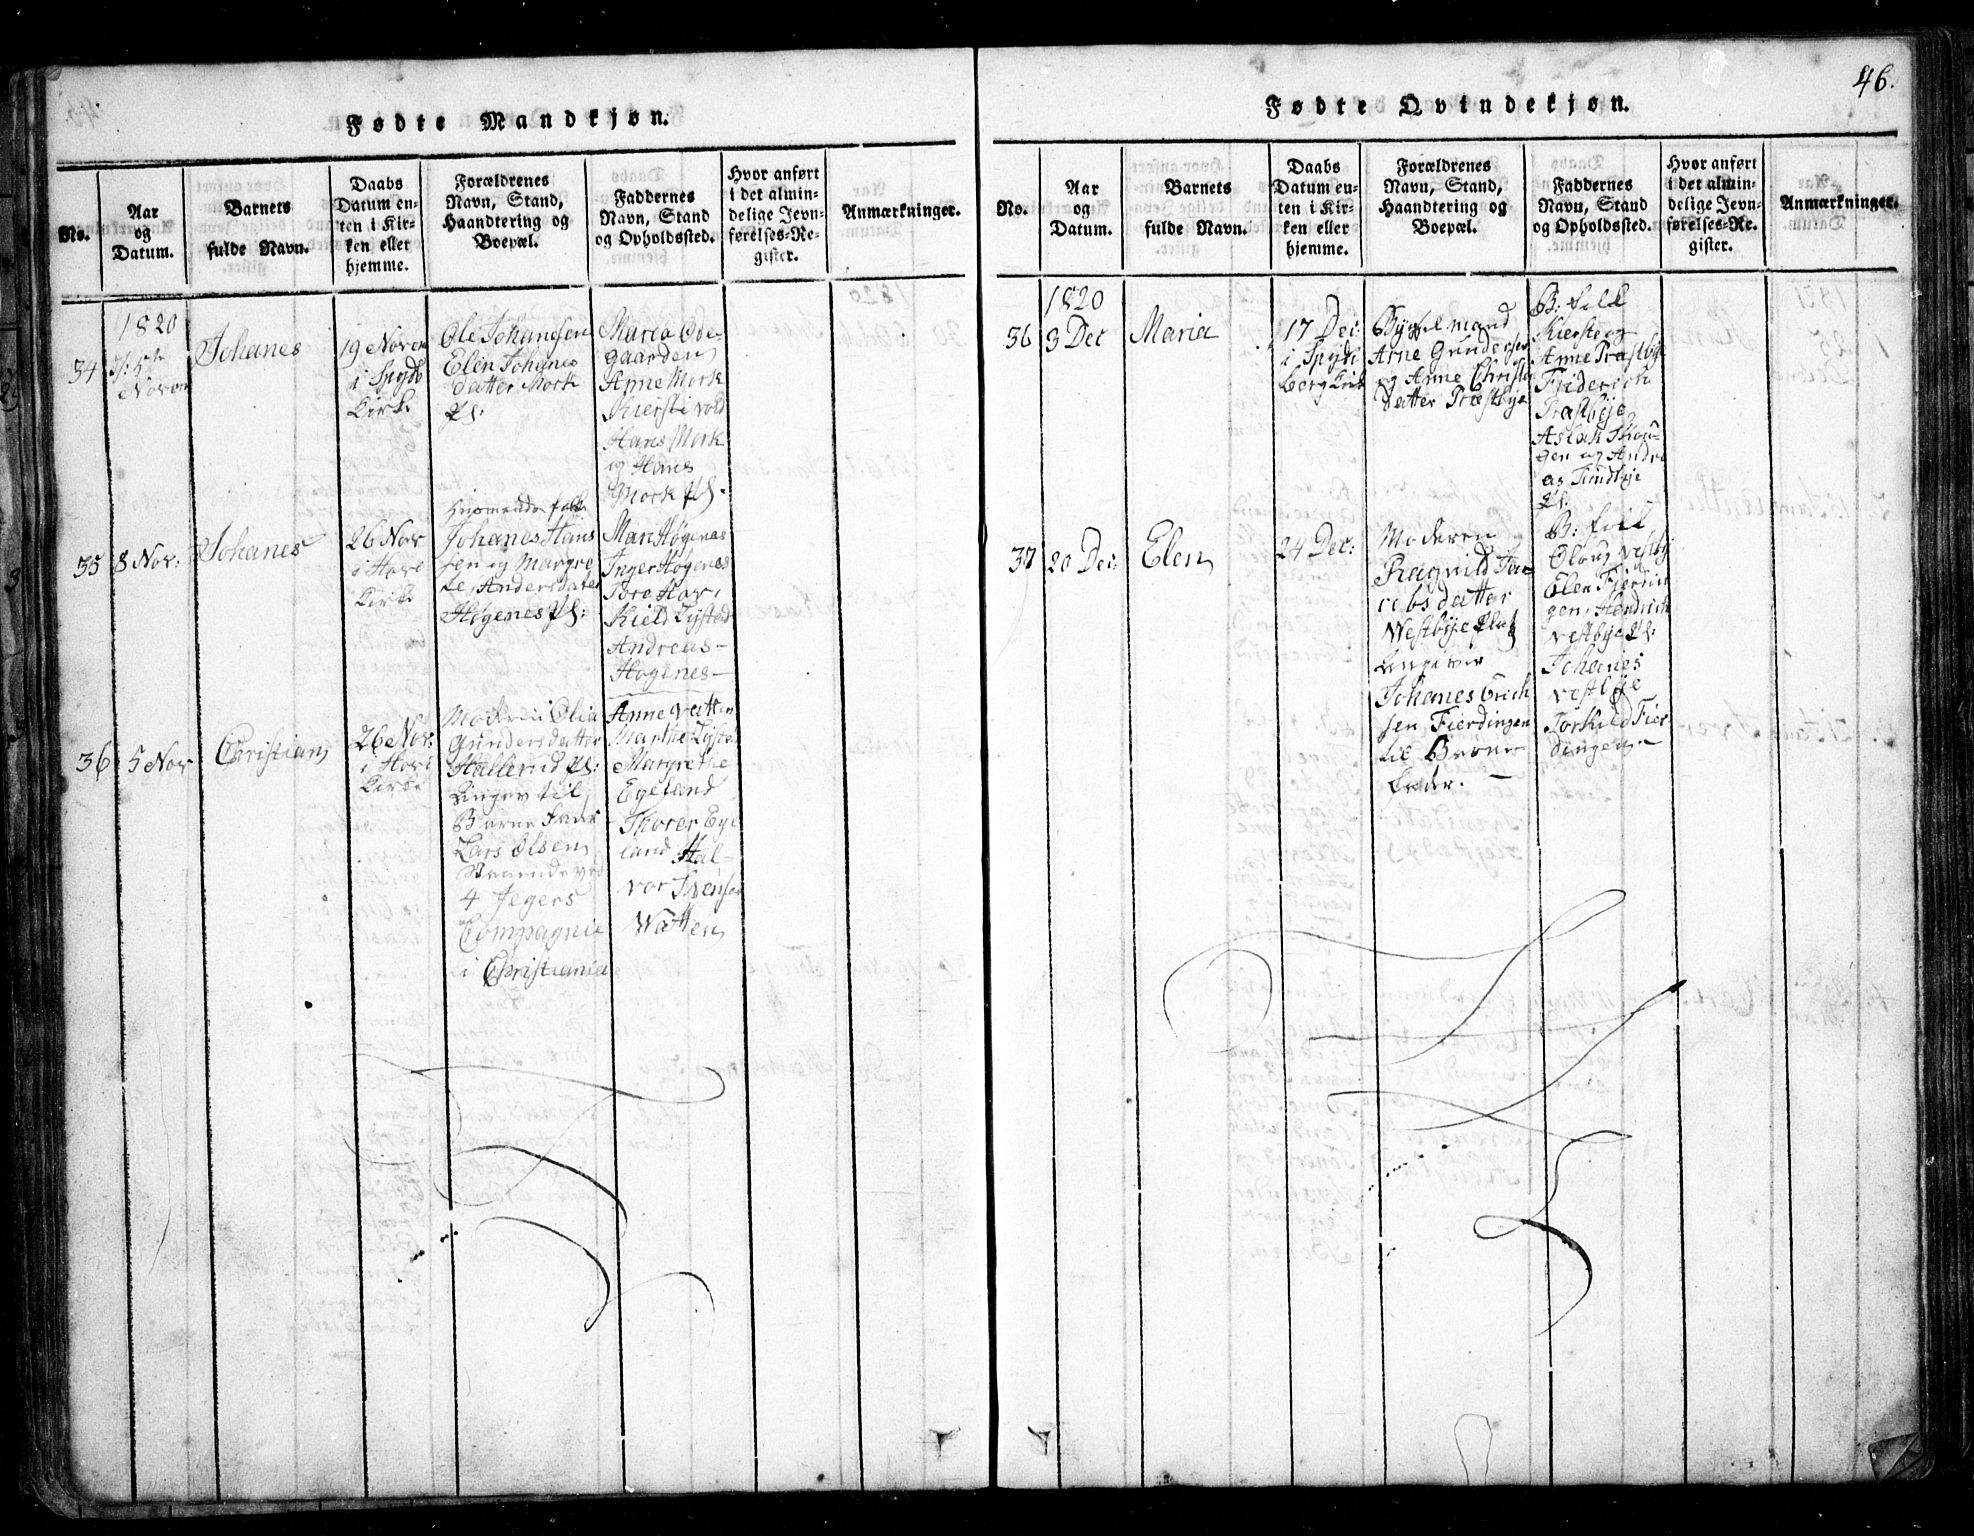 46.
Fødte Mandkjøn.
No.
Aar
og
Datum.
Barnets
fulde Navn.
Daabs
Datum en-
ten i Kir-
ken eller
hjemme.
Forældrenes
Navn, Stand,
Haandtering og
Boepæl.
Faddernes
Navn, Stand
og Opholdssted.
Hvor anført
i det almin-
delige Jevn-
førelses-Re-
gister.
Anmærkninger.
1820
34
5te
Novem
Johanes
19 Novem
i Spydb
Kirke
Ole Johansen
Elen Johanes
datter Mork
Pl:
Maria Ode-
gaarden
Anne Mork
Kiersti
Hans Mork
og Hans
Mork Pl.
35
8 Nov:
Johanes
26 Nov
i Hove
Kirke
Huusmands folk
Johanes Hans
sen og Margre
te Andersdatter
Høgenes Pl:
Mari Høgenes
Inger Høgenes
Tore Hov,
Kield Lysted
Andreas-
Høgenes-
36
5 Nov
Christian
26 Nov:
i Hove
Kirke
Moderen Olia
Gundersdatter
Hallerud Pl:
Angav til
Barne Fader
Lars Olsen
4 Jegers
Compagnie
i Christiania
Anne Vatten
Marthe Lysted
Margrethe
Eyeland
Thorer Eye
land Hal-
vor Svensen
Watten
Fødte Qvindekjøn.
No.
Aar
og
Datum.
Barnets
fulde Navn.
Daabs
Datum en-
ten i Kir-
ken eller
hjemme.
Forældrenes
Navn, Stand,
Haandtering og
Boepæl.
Faddernes
Navn, Stand
og Opholdssted.
Hvor anført
i det almin-
delige Jevn-
førelses-Re-
gister.
Anmærkninger.
1820
36
3 Dec
Maria
17 Dec:
i Spyde
berg Kirke
Bygselmand
Arne Gundersen
og Anne Christo
datter Præstbye
B: folk
Kiersti og
Anne Præstbye
Friderich
Præstbye
Aslak
gen og Andre
as Tundbye
Pl:
37
20 Dec:
Elen
24 Dec:
Moderen
Ragnild Ja-
cobsdatter
Westbye Plads
Angiver
Johanes Erich
sen Fierdingen
til Barne
fader. —
B: folk
Oloug Vestby
Elen Fierdin
gen, Hendrich
Vestbye Pl:
Johanes
Vestbye
Torkild Fier
dingen. —